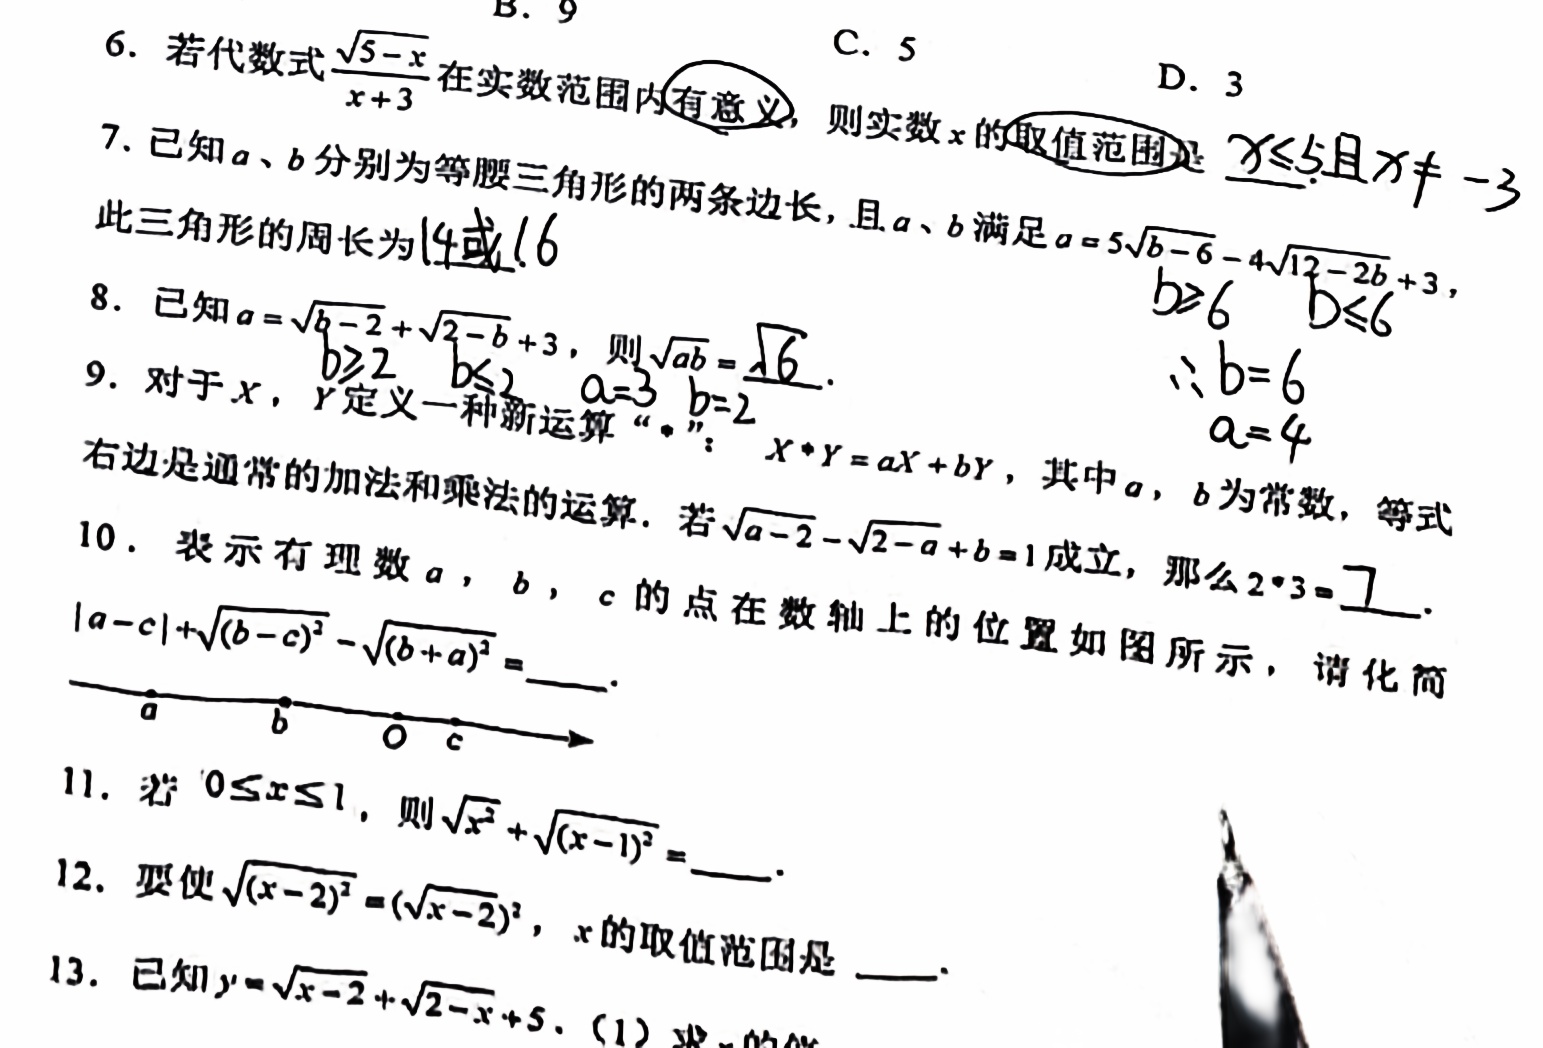 B. 9
C. 5
D. 3
6. 若代数式 √(5－x)/(x+3) 在实数范围内有意义，则实数x的取值范围是 x≤5且x≠-3
7. 已知a、b分别为等腰三角形的两条边长，且a、b满足a=5√(b－6)－4√(12－2b)+3，
b≥6 b≤6
此三角形的周长为14或16
∴b=6
a=4
8. 已知a=√(b－2)+√(2－b)+3，则√(ab)=√6.
b≥2 b≤2 a=3 b=2
9. 对于X，Y定义一种新运算“*”：X*Y=aX+bY，其中a，b为常数，等式
右边是通常的加法和乘法的运算. 若√(a－2)－√(2－a)+b=1成立，那么2*3=7.
10. 表示有理数a，b，c的点在数轴上的位置如图所示，请化简
|a－c|+√((b－c)²)－√((b+a)²)=____.
a b O c
11. 若 0≤x≤1，则√(x²)+√((x－1)²)=____.
12. 要使√((x－2)²)=(√(x－2))²，x的取值范围是 ____.
13. 已知y=√(x－2)+√(2－x)+5.（1）求